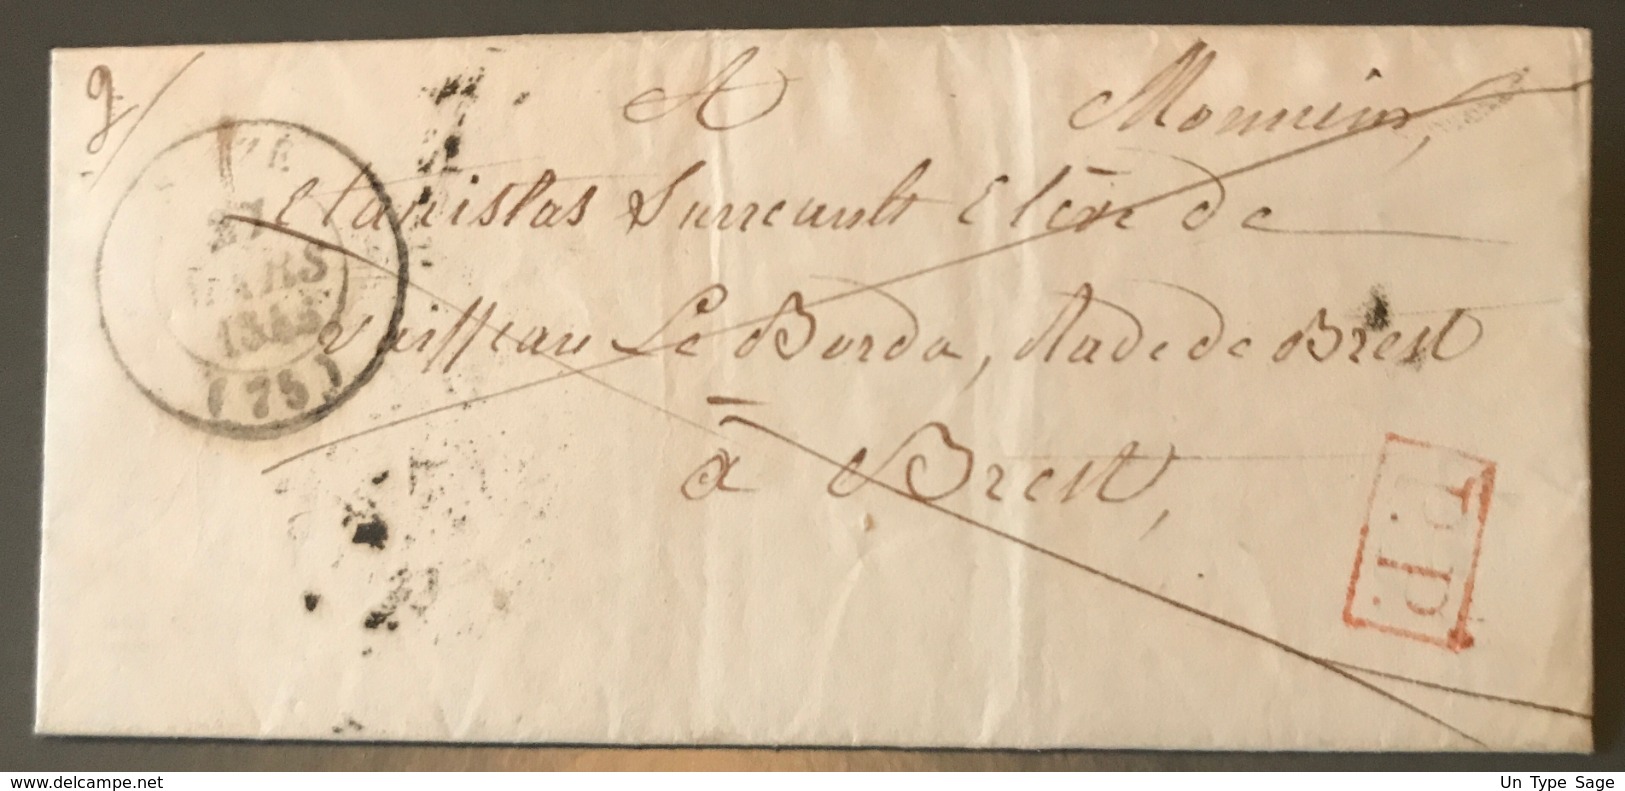 A Monsieur,
Stanislas Surreault Elève de
vaisseau Le Borda, Rade de Brest
à Brest,
27
MARS
(75)
P.P.
delcampe.net
Un Type Sage